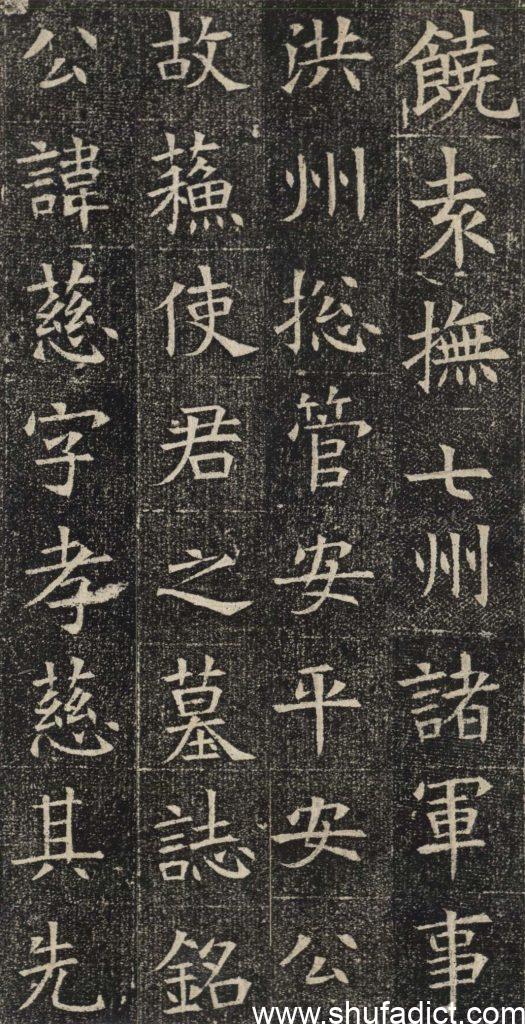 饒袁撫七州諸軍事
洪州揔管安平安公
故蘓使君之墓誌銘
公諱慈字孝慈其先
www.shufadict.com